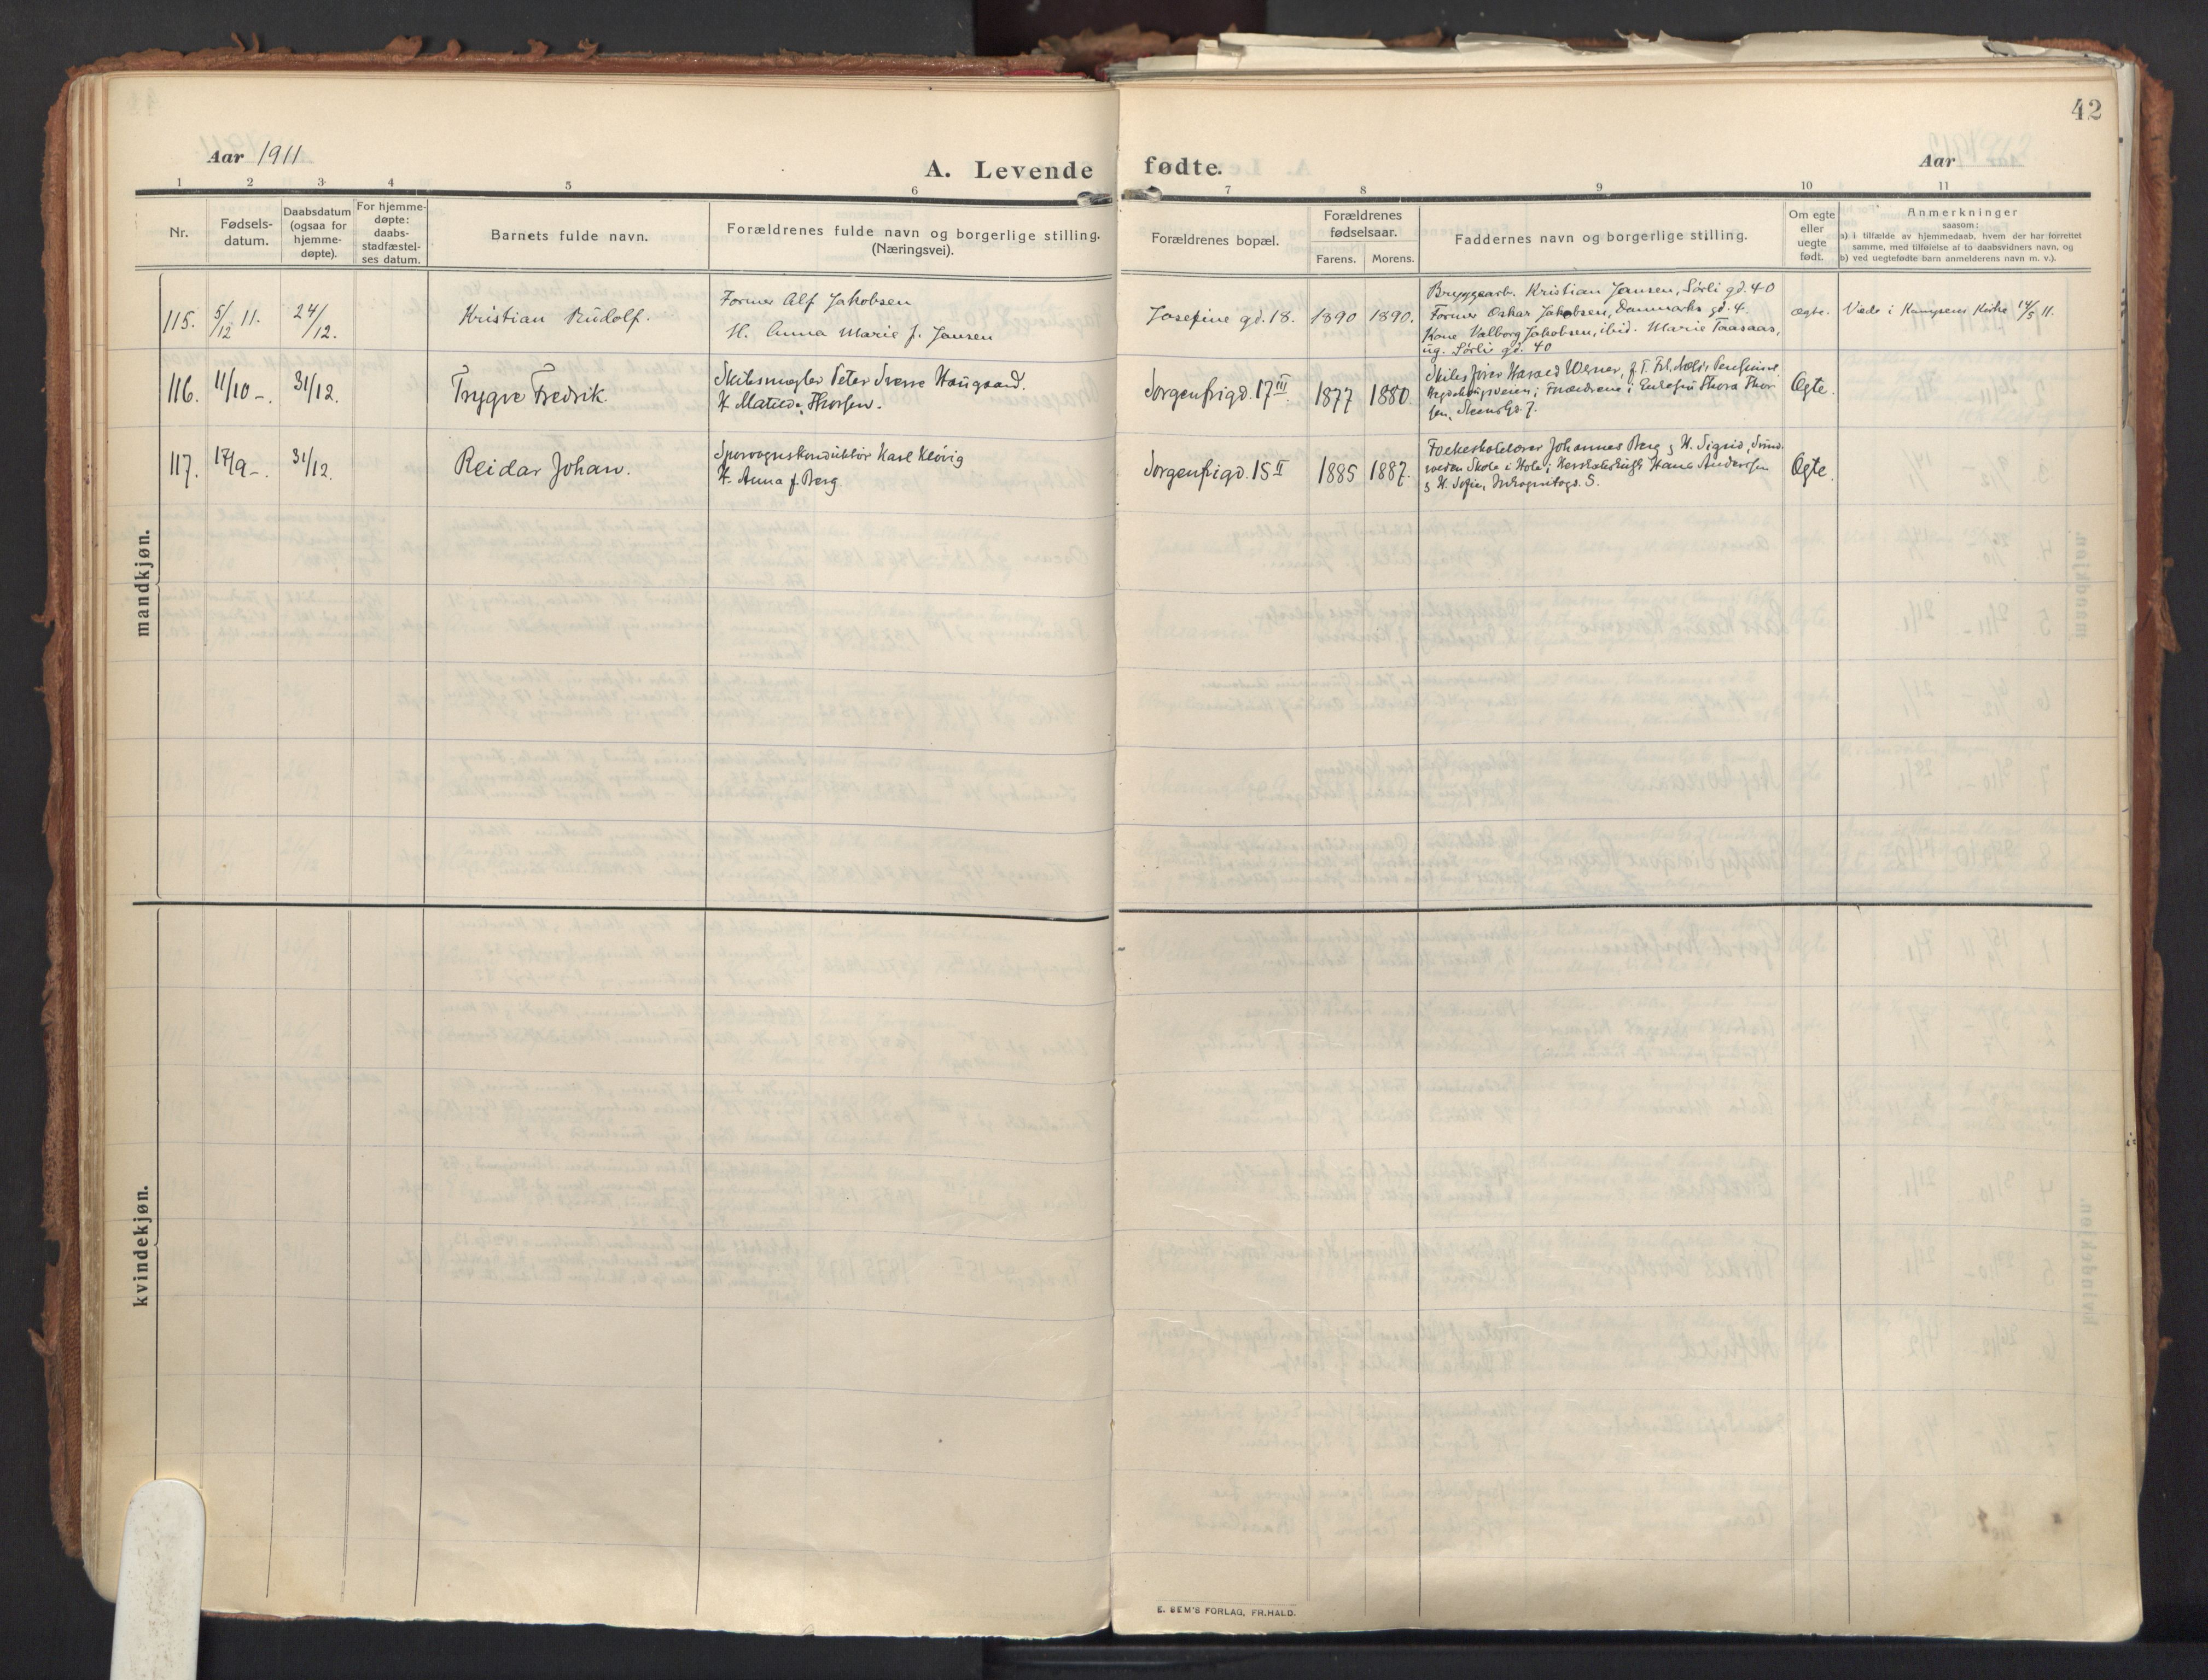 42
Aar 1911
A. Levende fødte.
Aar
1 2 3 4 5 6 7 8 9 10 11
Nr.
Fødsels-
datum.
Daabsdatum
(ogsaa for
hjemme-
døpte).
For hjemme-
døpte:
daabs-
stadfæstel-
ses datum.
Barnets fulde navn.
Forældrenes fulde navn og borgerlige stilling.
(Næringsvei).
Forældrenes bopæl.
Forældrenes
fødselsaar.
Farens. Morens.
Faddernes navn og borgerlige stilling.
Om egte
eller
uegte
født.
Anmerkninger
saasom:
a) i tilfælde av hjemmedaab, hvem der har forrettet
samme, med tilføielse af to daabsvidners navn, og
b) ved uegtefødte barn anmelderens navn m. v.).
mandkjøn.
115. 5/12 11. 24/12. Kristian Rudolf.
Former Alf Jakobsen
H. Anna Marie f. Jansen
Josefine gd. 18. 1890 1890.
Bryggearb. Kristian Jansen, Sörli gd. 40
Former Oskar Jakobsen, Danmarks gd. 4.
Kone Valborg Jakobsen, ibid. Marie Taasaas,
ug. Sörli gd. 40
ægte. Viede i Kampens Kirke 14/5 11.
116. 11/10 -. 31/12. Trygve Fredrik.
Skibsmægler Peter Sverre Haugaard.
H. Matilde Thorsen.
Sorgenfrigd. 17 III. 1877 1880
Skibsfører Harald Werner,
Forældrene; Thora Thor-
sen, 7.
Egte.
117. 17/9 -. 31/12. Reidar Johan.
Sporvognskonduktör Karl Klövig
H. Anna f. Berg.
Sorgenfrigd. 15 II 1885 1887.
Folkeskolelærer Johannes Berg & H. Sigrid,
Skole i Hole; Hans Anderssen
& H. Sofie, Inkognitogd. 5.
Egte.
kvindekjøn.
E. SEM'S FORLAG, FR.HALD.